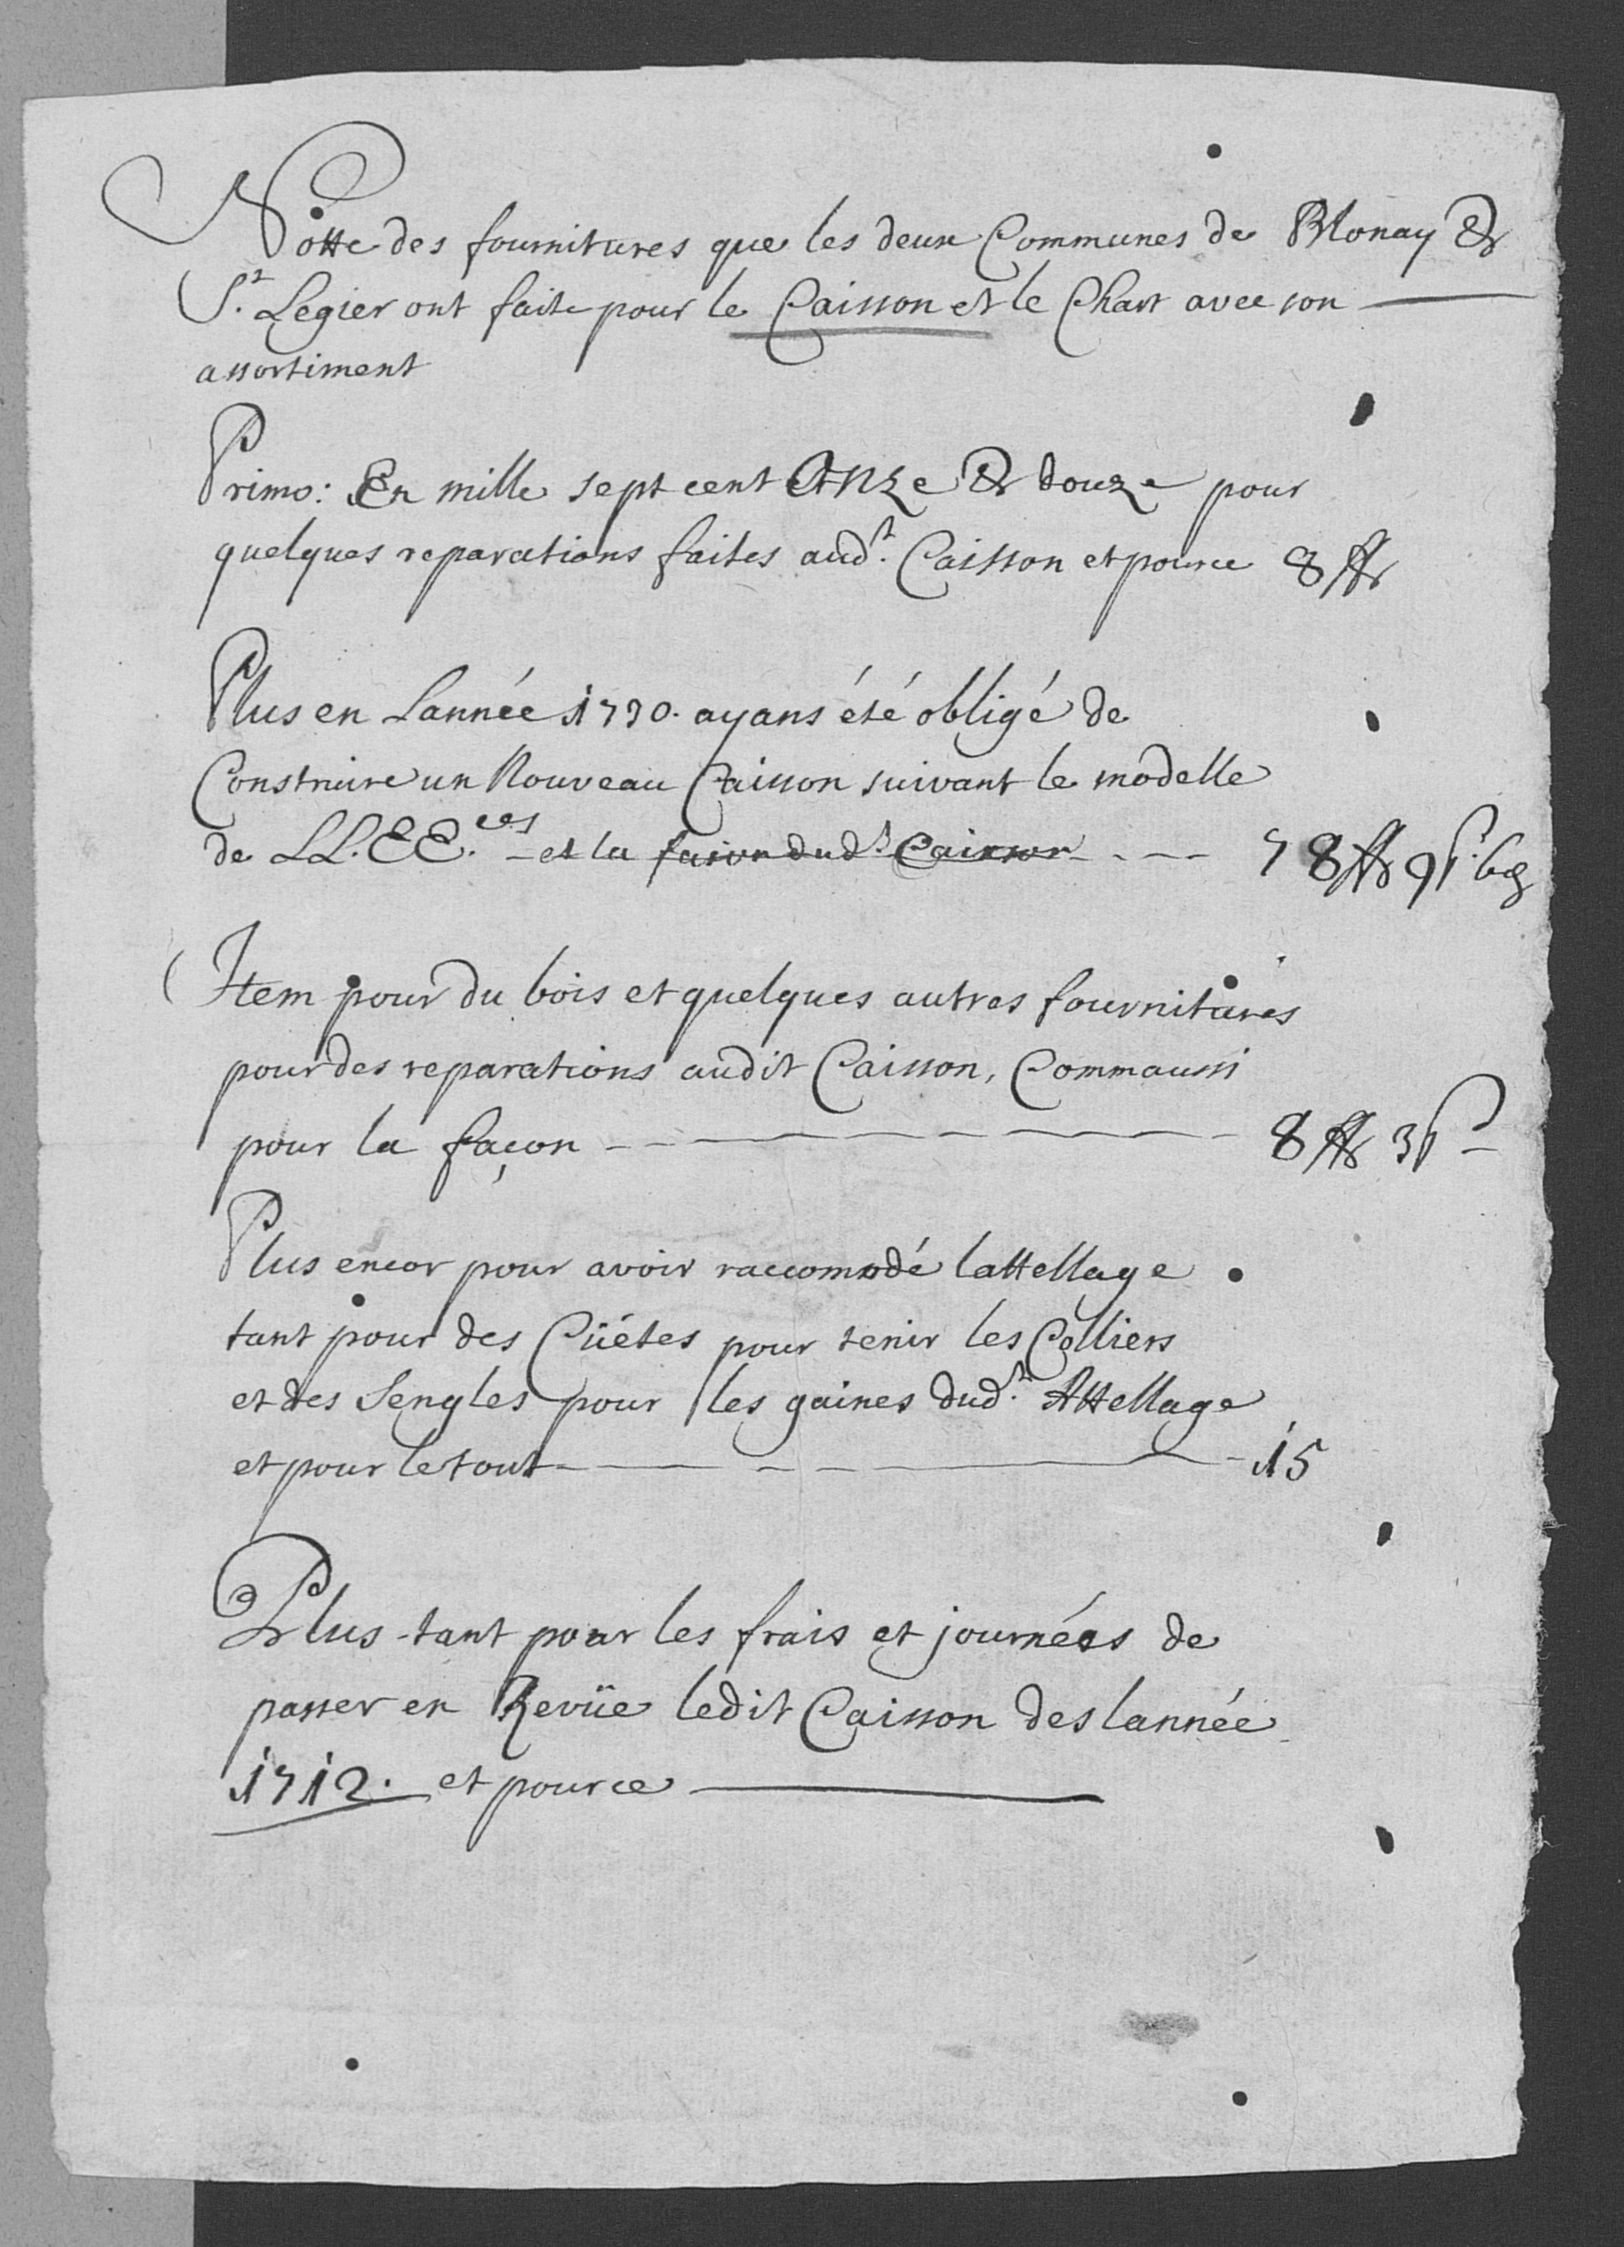 Notte des fournitures que les deux Communes de Blonay &
S.t Legier ont faite pour le Caisson et le Chart avec son
assortiment
Primo: En mille sept cent Onze & douze pour
quelques reparations faites aud.t Caisson et pource 8 ff
Plus en Lannée 1730. ayans été obligé de
Construire un Nouveau Caisson suivant le modelle
de LL.EE.ces - et la fasson dud.t Caisson 78 ff 9 s. 6 d
Item pour du bois et quelques autres fournitures
pour des reparations audit Caisson, Commaussi
pour la façon 8 ff 3 s
Plus encor pour avoir raccomodé lattellage
tant pour des Cüétes pour tenir les Colliers
et des Sengles pour les gaines dud.t Attellage
et pour le tout 15
Plus tant pour les frais et journées de
passer en Revüe ledit Caisson des lannée
1712. et pource